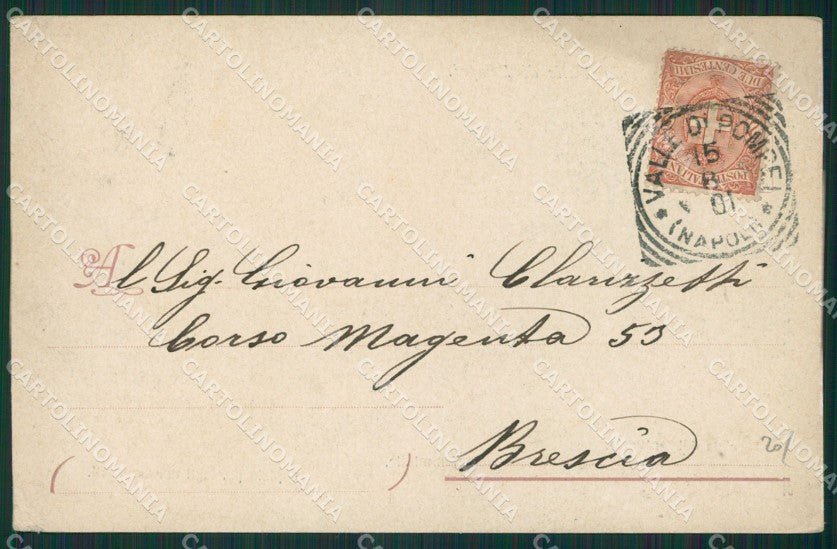 DUE CENTESIMI
POSTE ITALIANE
VALLE DI POMPEI
15
8
01
(NAPOLI)
Al Sig. Giovanni Clarizzetti
Corso Magenta 53
Brescia
20/
( )
CARTOLINOMANIA